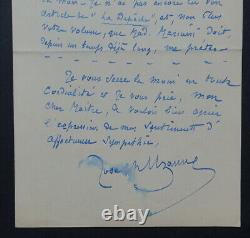 la main. Je n'ai pas encore lu son
article de "La Dépêche", et non plus
votre volume, que Mad. Mariani doit,
depuis un temps déjà long, me prêter —
Je vous serre la main en toute
cordialité et je vous prie, mon
cher Maître, de vouloir bien agréer
l'expression de mes sentiments d'
affectueuse sympathie,
Joseph Uzanne